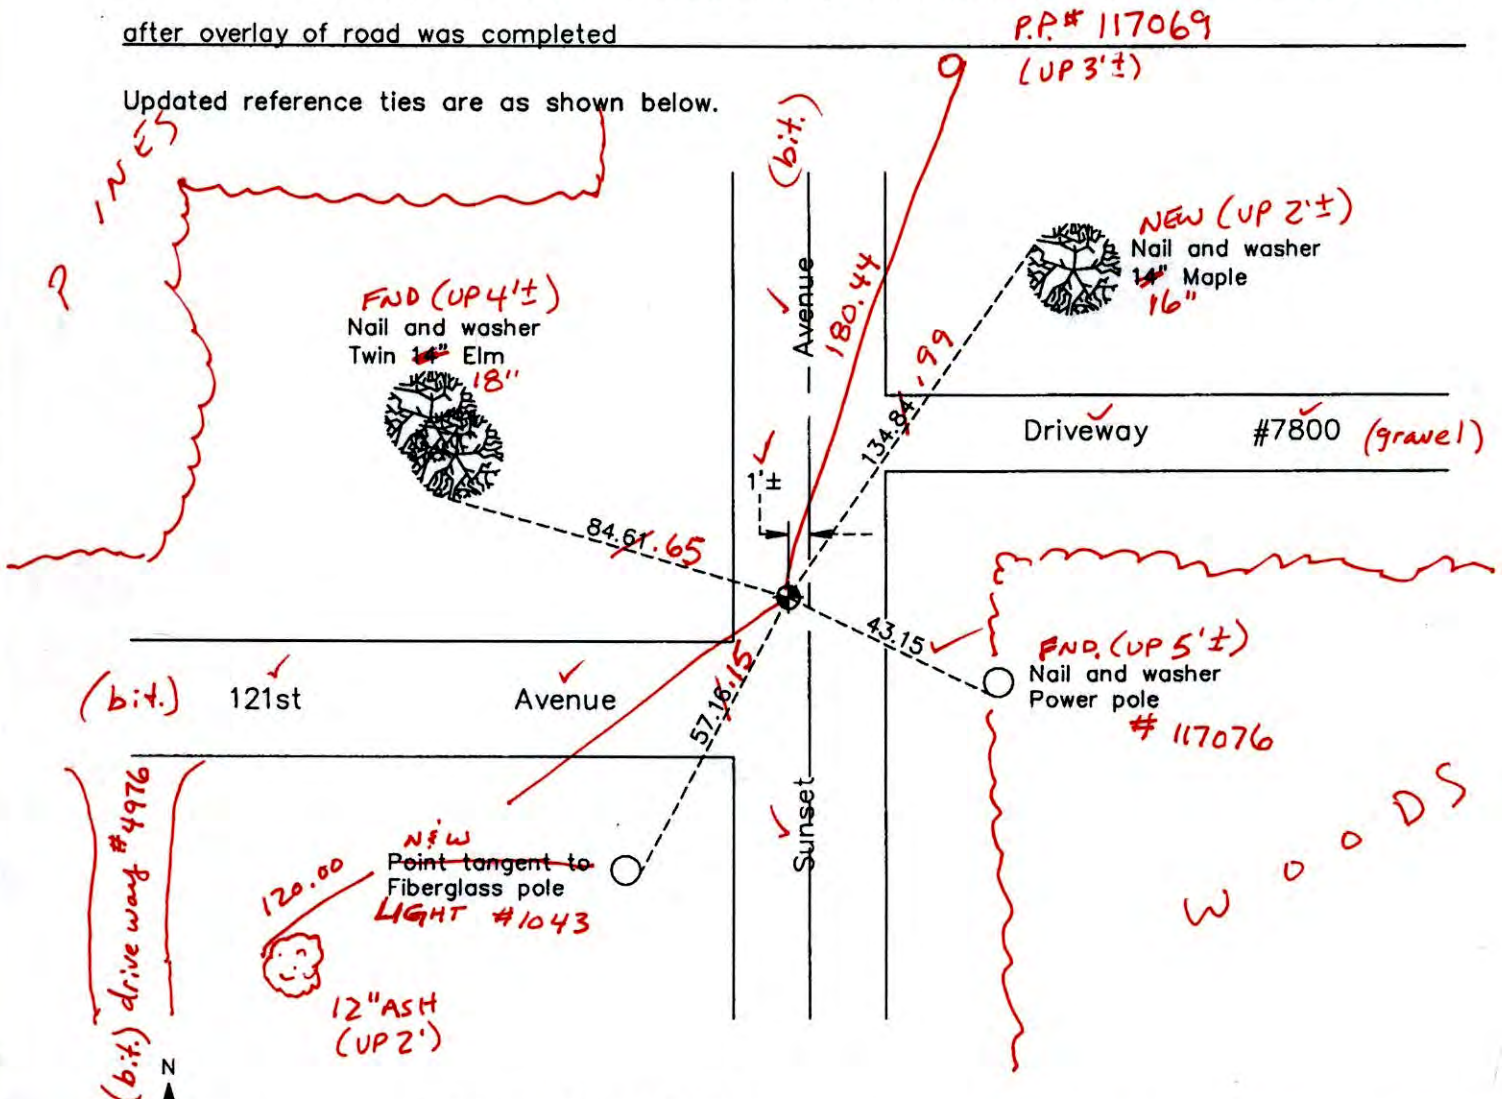 after overlay of road was completed
P.P.# 117069
(UP 3'±)
Updated reference ties are as shown below.
PINES
(bit.)
NEW (UP 2'±)
Nail and washer
14" Maple
16"
FND (UP 4'±)
Nail and washer
Twin 14" Elm
18"
Avenue
180.44
134.84 .99
Driveway #7800 (gravel)
1'±
84.61 .65
43.15
FND. (UP 5'±)
Nail and washer
Power pole
# 117076
(bit.) 121st Avenue
57.16 .15
Sunset
WOODS
N&W
Point tangent to
Fiberglass pole
LIGHT #1043
120.00
12" ASH
(UP 2')
(bit.) driveway #4976
N